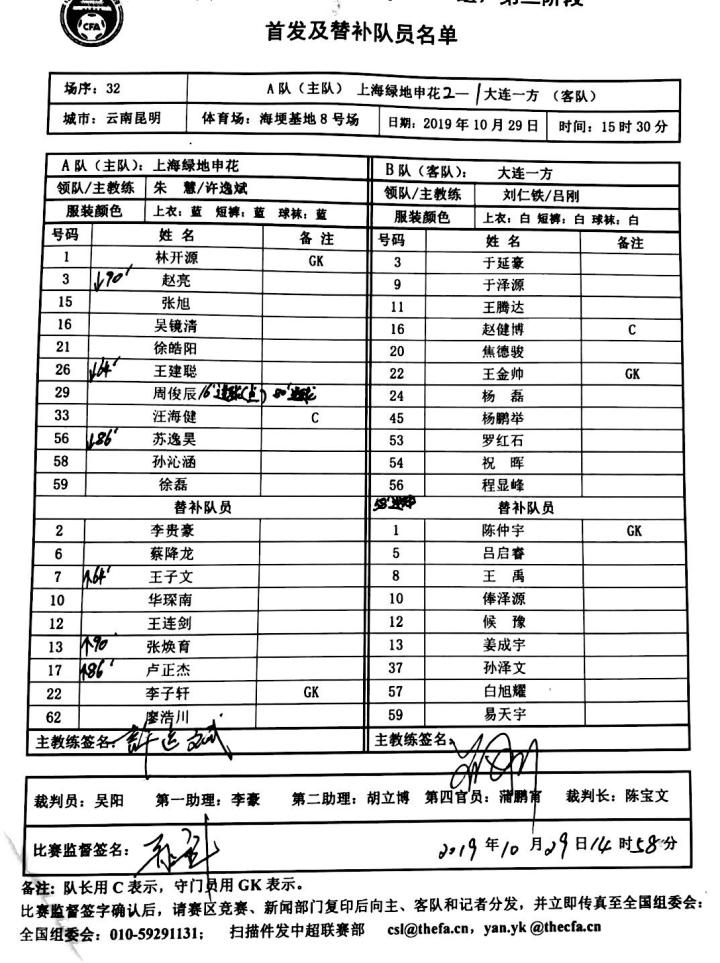 CFA
首发及替补队员名单
场序：32 A队（主队） 上海绿地申花2—1大连一方 （客队）
城市：云南昆明 体育场：海埂基地8号场 日期：2019年10月29日 时间：15时30分
A队（主队）：上海绿地申花 B队（客队）： 大连一方
领队/主教练 朱 慧/许逸斌 领队/主教练 刘仁铁/吕刚
服装颜色 上衣：蓝 短裤：蓝 球袜：蓝 服装颜色 上衣：白 短裤：白 球袜：白
号码 姓名 备注 号码 姓名 备注
1 林开源 GK 3 于延豪
3 ↓90′ 赵亮 9 于泽源
15 张旭 11 王腾达
16 吴镜清 16 赵健博 C
21 徐皓阳 20 焦德骏
26 ↓64′ 王建聪 22 王金帅 GK
29 周俊辰 16′进球(点) 80′进球 24 杨 磊
33 汪海健 C 45 杨鹏举
56 ↓86′ 苏逸昊 53 罗红石
58 孙沁涵 54 祝 晖
59 徐磊 56 程显峰
替补队员 58′进球 替补队员
2 李贵豪 1 陈仲宇 GK
6 蔡降龙 5 吕启睿
7 ↑64′ 王子文 8 王 禹
10 华琛南 10 俸泽源
12 王连剑 12 候 豫
13 ↑90 张焕育 13 姜成宇
17 ↑86′ 卢正杰 37 孙泽文
22 李子轩 GK 57 白旭耀
62 廖浩川 59 易天宇
主教练签名： 主教练签名：
裁判员：吴阳 第一助理：李豪 第二助理：胡立博 第四官员：蒲鹏甯 裁判长：陈宝文
比赛监督签名： 2019年10月29日14时58分
备注：队长用 C 表示，守门员用 GK 表示。
比赛监督签字确认后，请赛区竞赛、新闻部门复印后向主、客队和记者分发，并立即传真至全国组委会：
全国组委会：010-59291131； 扫描件发中超联赛部 csl@thefa.cn，yan.yk @thecfa.cn